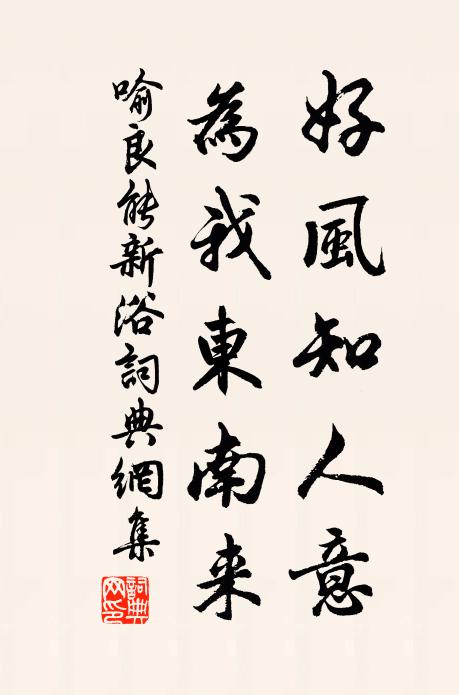 好風知人意
為我東南来
喻良能新浴詞典網集
詞典網印